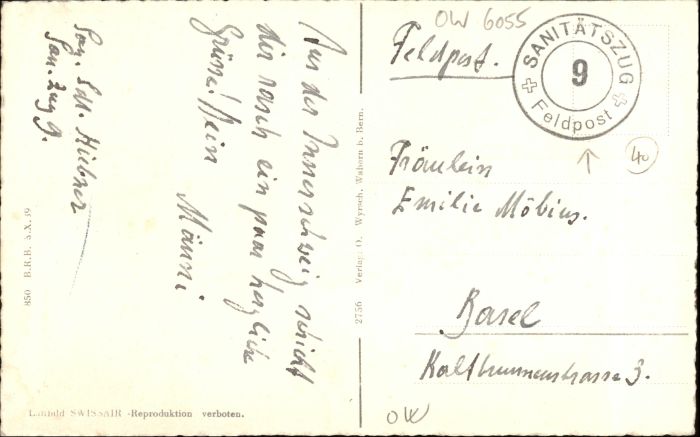 OW 6055
Feldpost.
SANITÄTSZUG
9
Feldpost
40
Fräulein
Emilie Möbius.
Basel
Kaltbrunnenstrasse 3.
OW
Aus der Innerschweiz schickt
dir rasch ein paar herzliche
Grüsse! Dein
Männi
San. Sdt. Hiebner
San. Zug 9.
2756 Verlag: O. Wyrsch, Wabern b. Bern.
850 B.R.B. 3.X.39
Luftbild SWISSAIR -Reproduktion verboten.